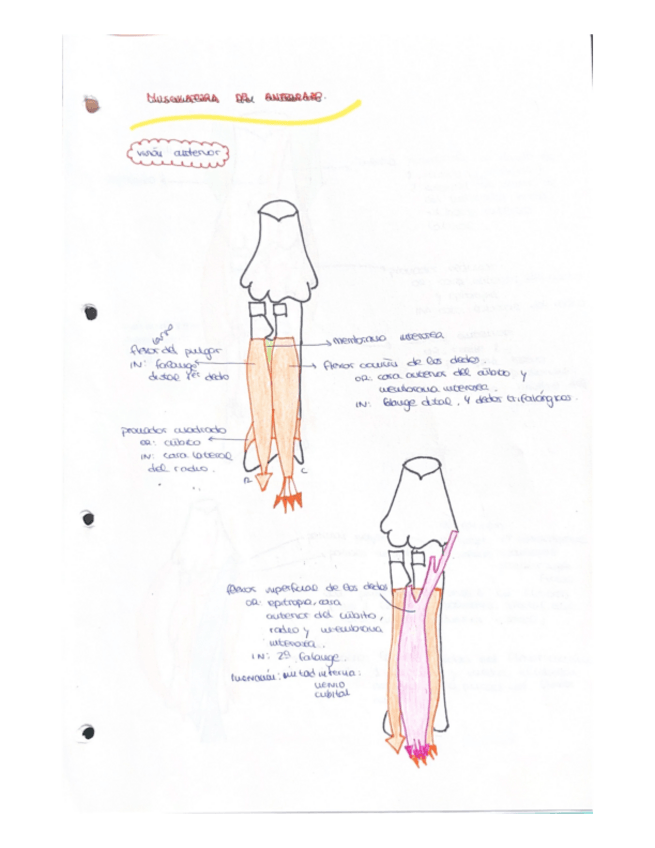 MUSCULATURA DEL ANTEBRAZO.
visión anterior
membrana interósea
largo
flexor del pulgar
IN: falange
distal 1er dedo
flexor común de los dedos.
OR: cara anterior del cúbito y
membrana interósea.
IN: falange distal, 4 dedos trifalángicos.
pronador cuadrado
OR: cúbito
IN: cara lateral
del radio.
R
C
flexor superficial de los dedos
OR: epitróclea, cara
anterior del cúbito,
radio y membrana
interósea.
IN: 2ª falange.
Inervación: mitad interna:
cubital